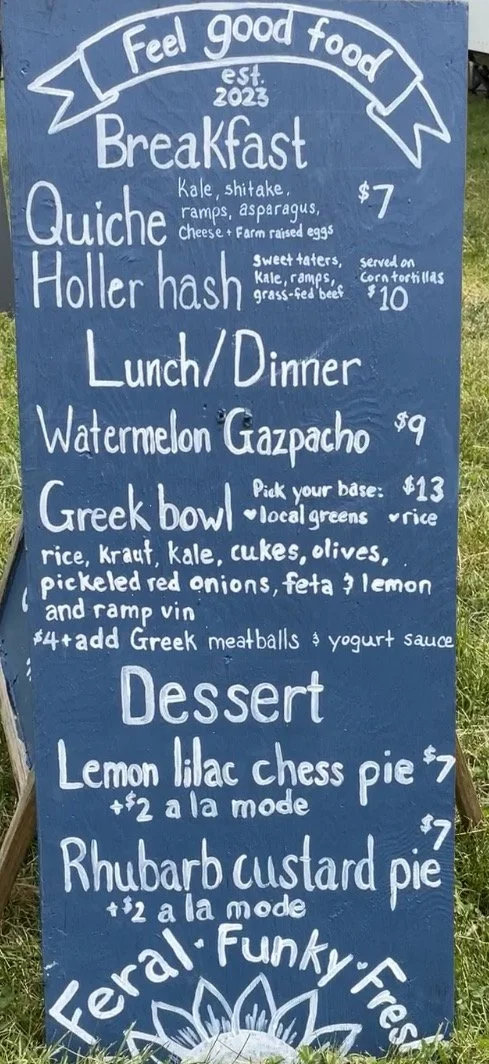 Feel good food
est.
2023
Breakfast
Quiche Kale, shitake, ramps, asparagus, cheese + Farm raised eggs $7
Holler hash sweet taters, Kale, ramps, grass-fed beef served on Corn tortillas $10
Lunch/Dinner
Watermelon Gazpacho $9
Greek bowl Pick your base: $13
♥local greens ♥rice
rice, kraut, kale, cukes, olives,
pickeled red onions, feta & lemon
and ramp vin
$4+add Greek meatballs & yogurt sauce
Dessert
Lemon lilac chess pie $7
+$2 a la mode
Rhubarb custard pie $7
+$2 a la mode
Feral · Funky · Fresh